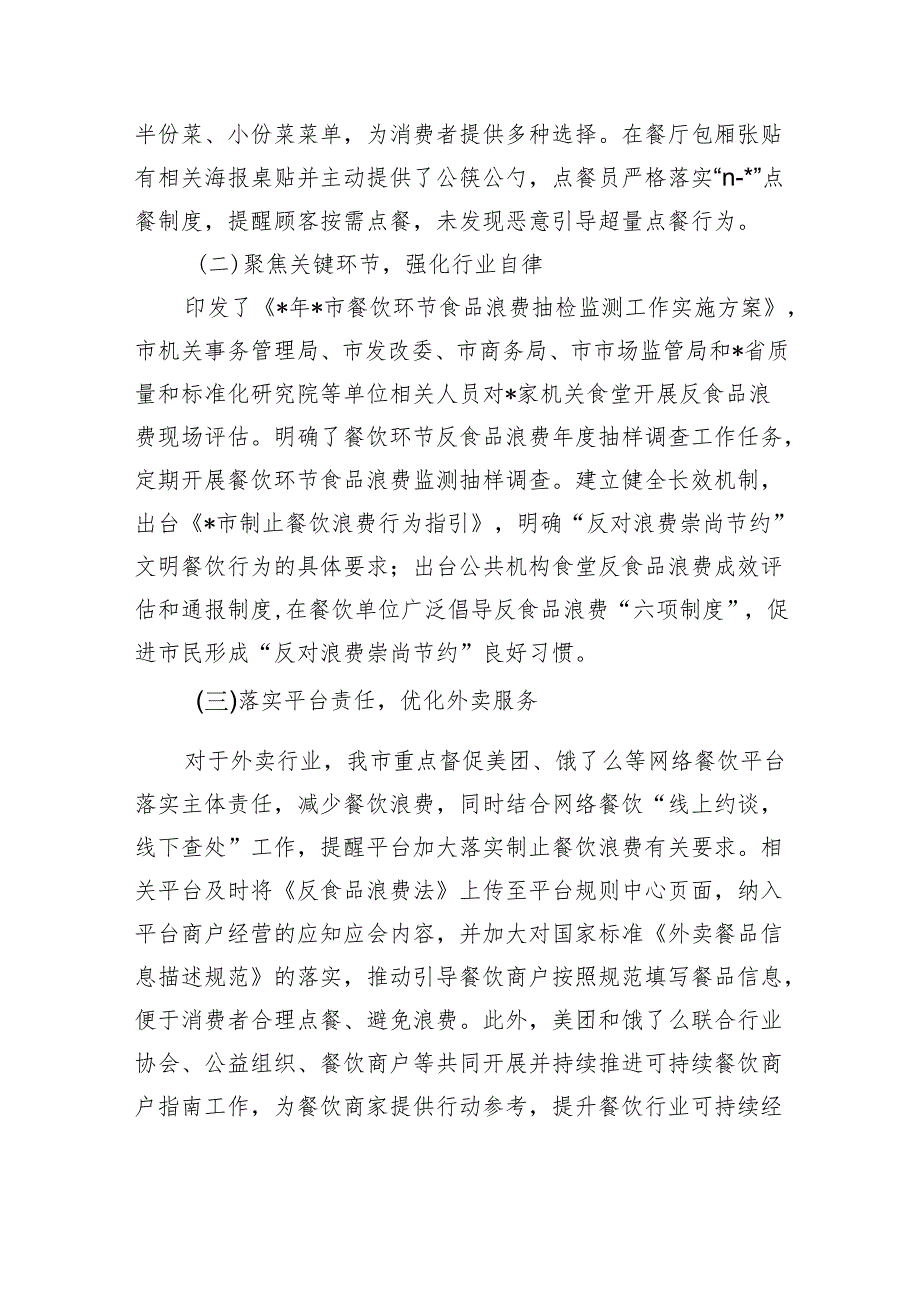 半份菜、小份菜菜单，为消费者提供多种选择。在餐厅包厢张贴
有相关海报桌贴并主动提供了公筷公勺，点餐员严格落实“n-*”点
餐制度，提醒顾客按需点餐，未发现恶意引导超量点餐行为。
(二)聚焦关键环节，强化行业自律
印发了《*年*市餐饮环节食品浪费抽检监测工作实施方案》，
市机关事务管理局、市发改委、市商务局、市市场监管局和*省质
量和标准化研究院等单位相关人员对*家机关食堂开展反食品浪
费现场评估。明确了餐饮环节反食品浪费年度抽样调查工作任务，
定期开展餐饮环节食品浪费监测抽样调查。建立健全长效机制，
出台《*市制止餐饮浪费行为指引》，明确“反对浪费崇尚节约”
文明餐饮行为的具体要求；出台公共机构食堂反食品浪费成效评
估和通报制度,在餐饮单位广泛倡导反食品浪费“六项制度”，促
进市民形成“反对浪费崇尚节约”良好习惯。
(三)落实平台责任，优化外卖服务
对于外卖行业，我市重点督促美团、饿了么等网络餐饮平台
落实主体责任，减少餐饮浪费，同时结合网络餐饮“线上约谈，
线下查处”工作，提醒平台加大落实制止餐饮浪费有关要求。相
关平台及时将《反食品浪费法》上传至平台规则中心页面，纳入
平台商户经营的应知应会内容，并加大对国家标准《外卖餐品信
息描述规范》的落实，推动引导餐饮商户按照规范填写餐品信息，
便于消费者合理点餐、避免浪费。此外，美团和饿了么联合行业
协会、公益组织、餐饮商户等共同开展并持续推进可持续餐饮商
户指南工作，为餐饮商家提供行动参考，提升餐饮行业可持续经